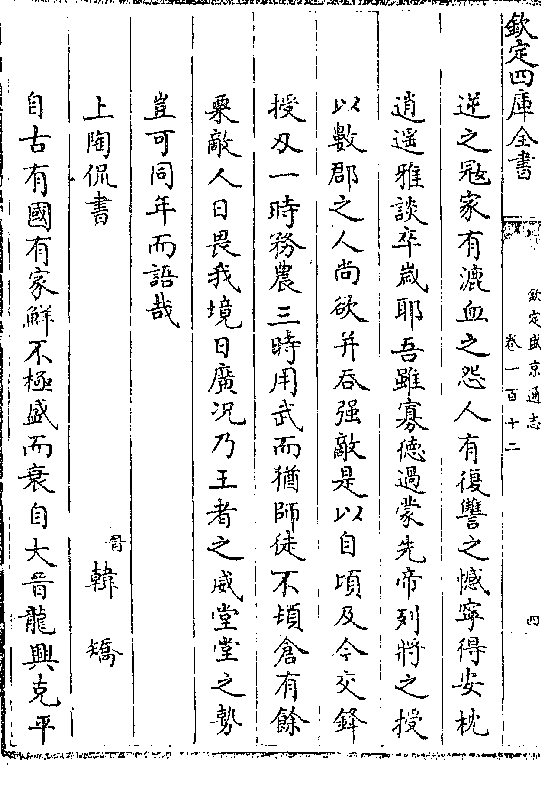 欽定四庫全書
欽定盛京通志
卷一百十二
四
逆之冦家有漉血之怨人有復讐之憾寧得安枕
逍遥雅談卒嵗耶吾雖寡德過蒙先帝列將之授
以數郡之人尚欲并吞强敵是以自頃及今交鋒
接刄一時務農三時用武而猶師徒不頓倉有餘
粟敵人日畏我境日廣况乃王者之威堂堂之勢
豈可同年而語哉
上陶侃書
晉 韓矯
自古有國有家鮮不極盛而衰自大晉龍興克平